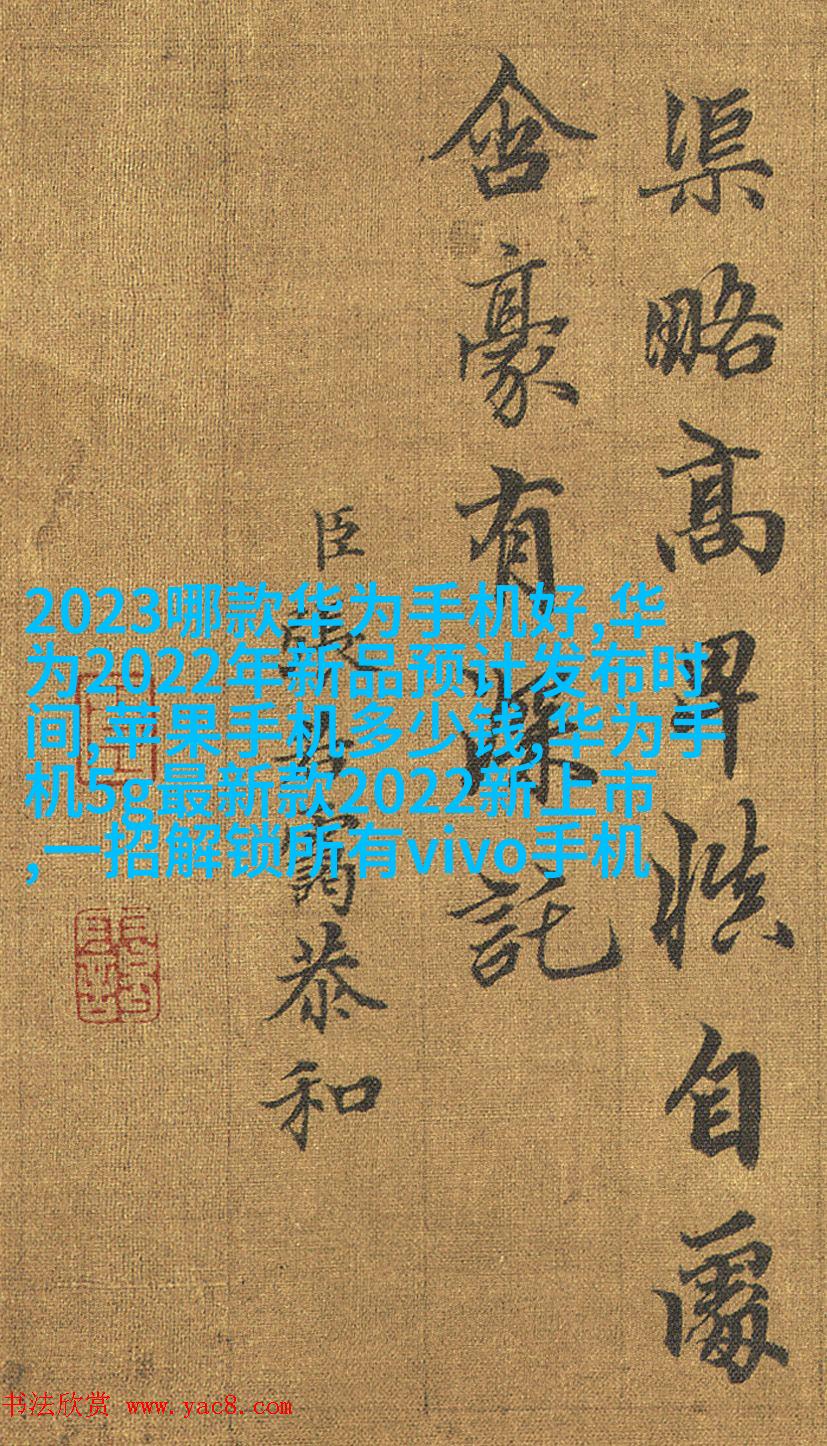 渠略高卑慎自處
含豪有深託
臣張若靄恭和
2023哪款华为手机好,华
为2022年新品预计发布时
间,苹果手机多少钱,华为手
机5g最新款2022新上市
,一招解锁所有vivo手机
书法欣赏 www.yac8.com